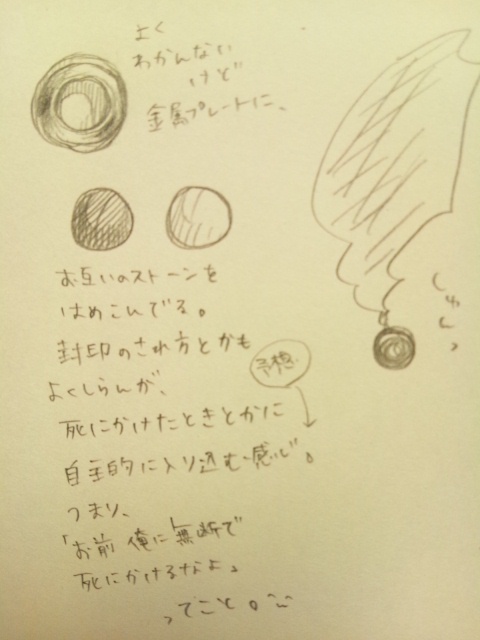 よく
わかんない
けど
金属プレートに、
お互いのストーンを
はめこんでる。
封印のされ方とかも
よくしらんが、
予想
死にかけたときとかに
自主的に入り込む感じ。
つまり、
「お前 俺に無断で
死にかけるなよ」
ってこと。
しゅんっ